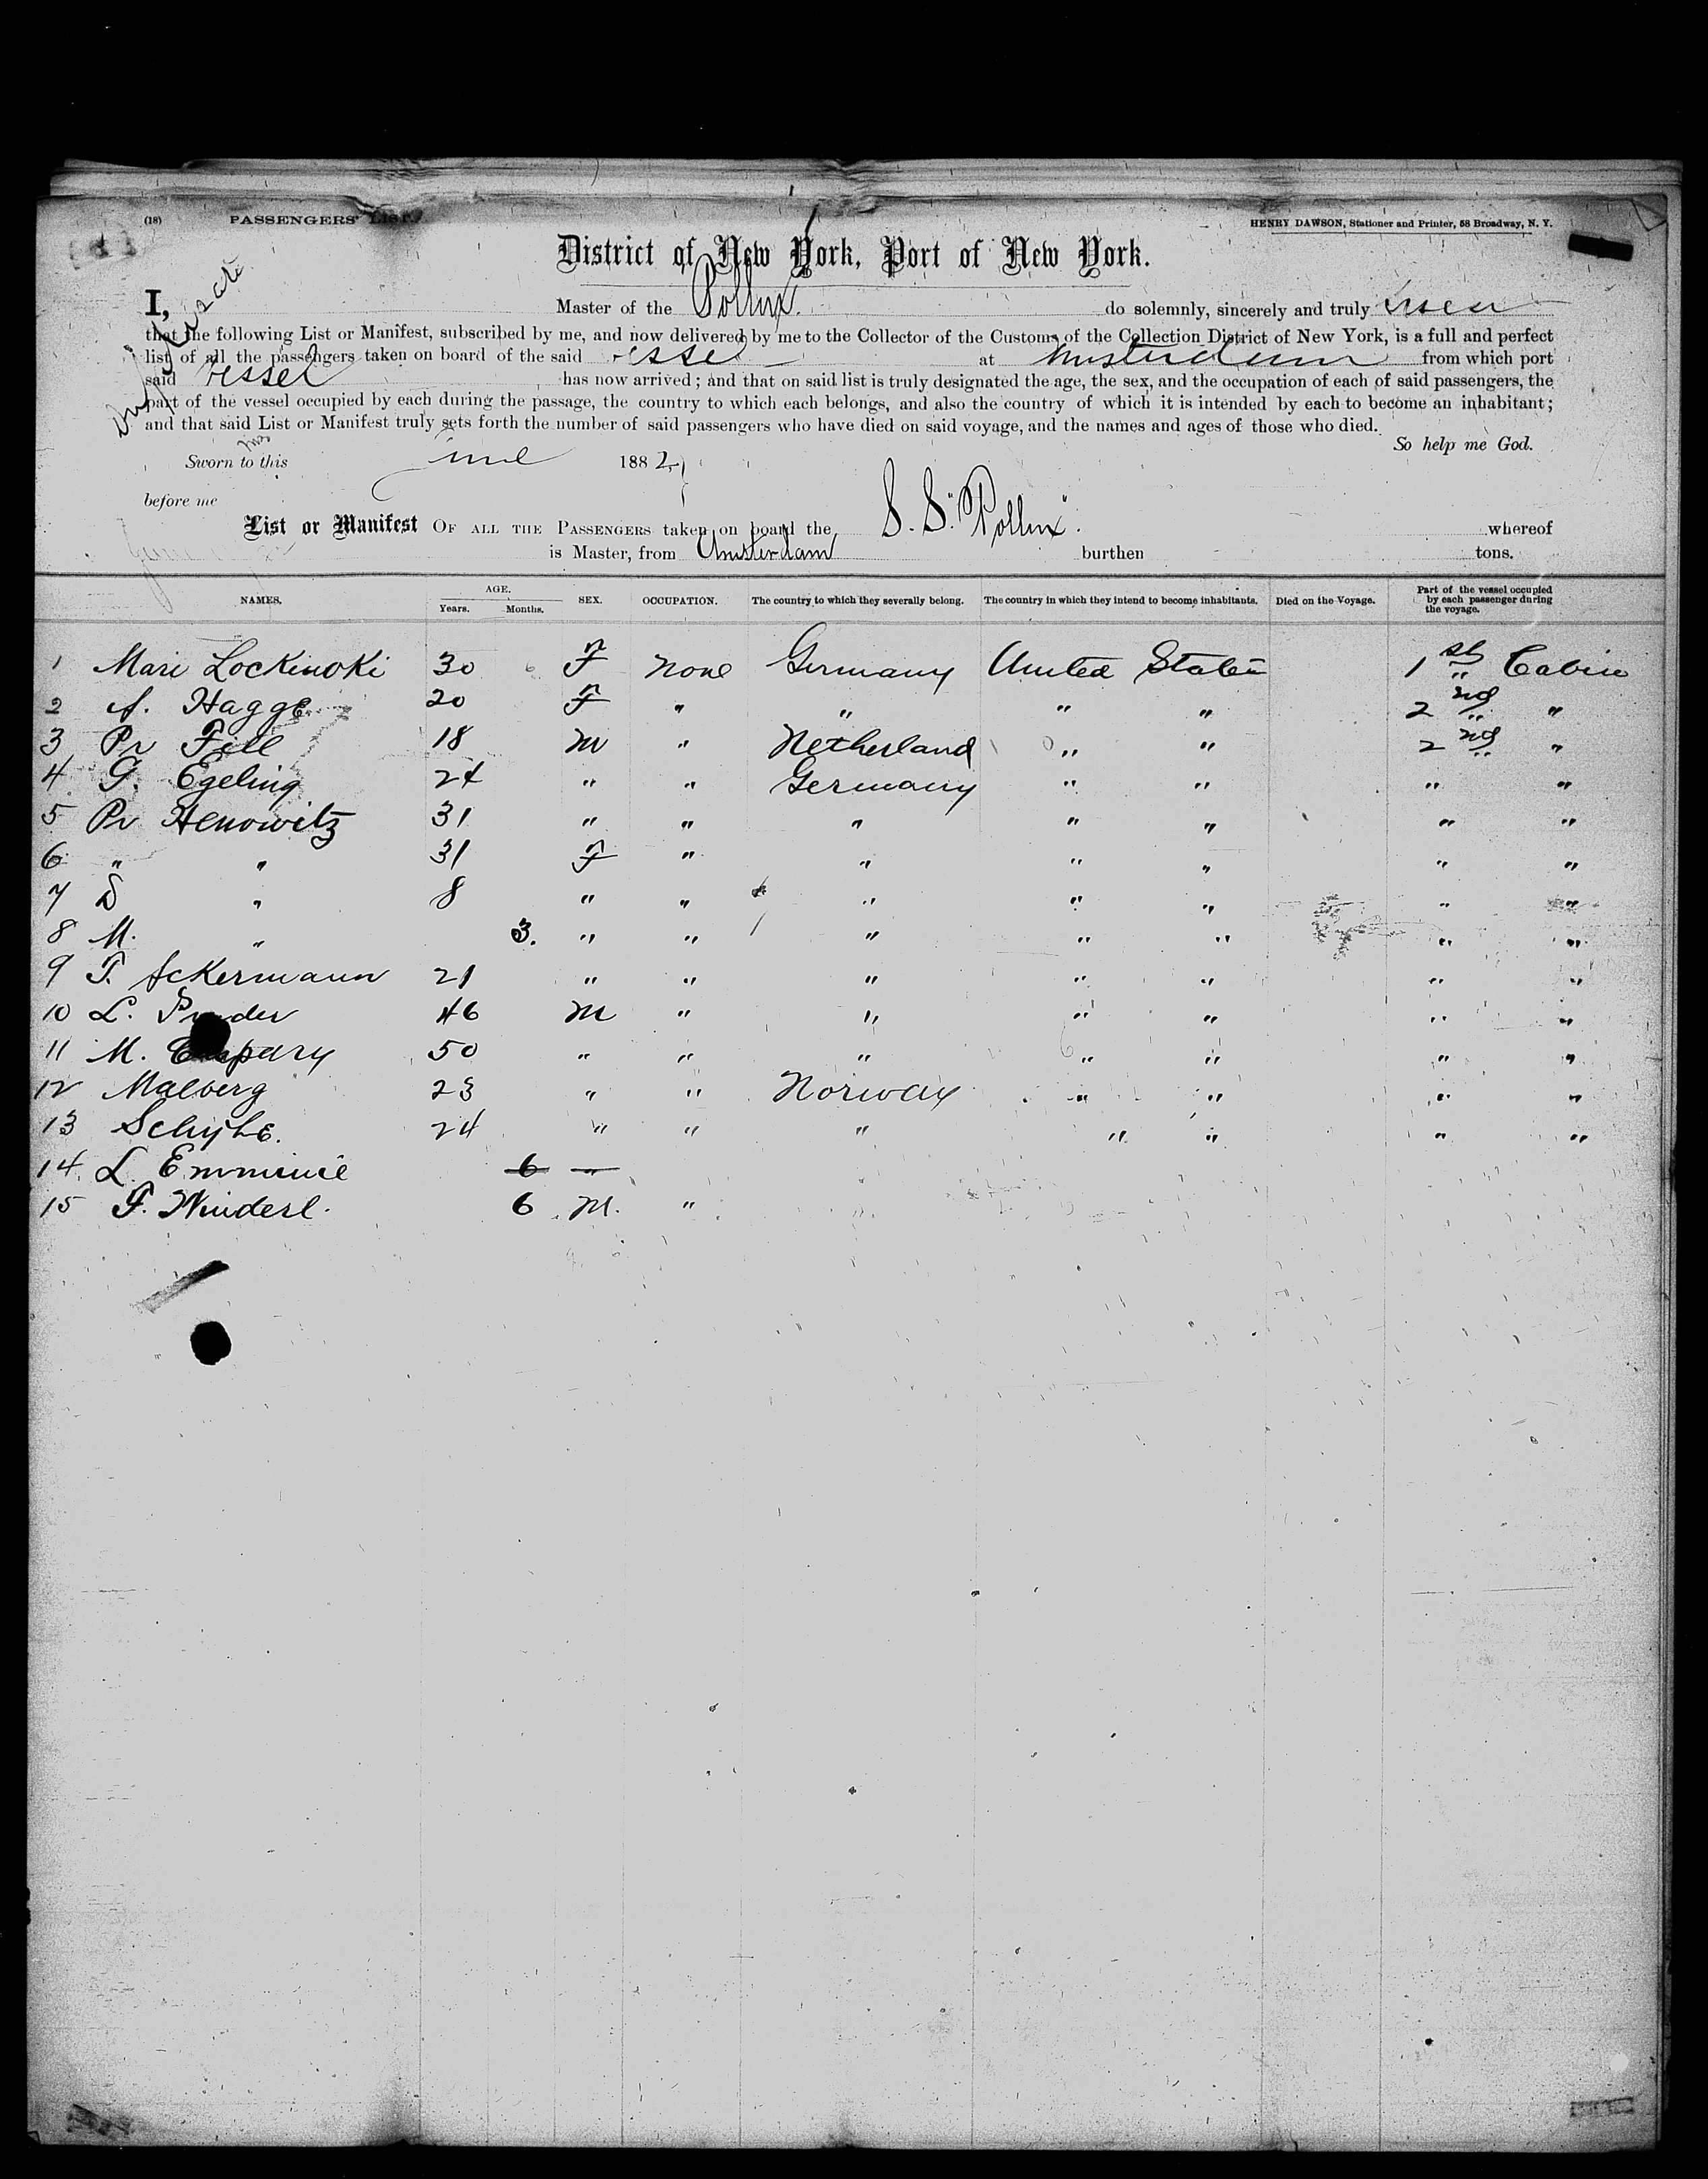 (18) PASSENGERS' LIST.
HENRY DAWSON, Stationer and Printer, 58 Broadway, N. Y.
District of New York, Port of New York.
I, Master of the Pollux. do solemnly, sincerely and truly
that the following List or Manifest, subscribed by me, and now delivered by me to the Collector of the Customs of the Collection District of New York, is a full and perfect
list of all the passengers taken on board of the said at Amsterdam from which port
said vessel has now arrived; and that on said list is truly designated the age, the sex, and the occupation of each of said passengers, the
part of the vessel occupied by each during the passage, the country to which each belongs, and also the country of which it is intended by each to become an inhabitant;
and that said List or Manifest truly sets forth the number of said passengers who have died on said voyage, and the names and ages of those who died.
So help me God.
Sworn to this June 1882
before me
List or Manifest OF ALL THE PASSENGERS taken on board the S. S. "Pollux". whereof
is Master, from Amsterdam burthen tons.
NAMES. AGE. Years. Months. SEX. OCCUPATION. The country to which they severally belong. The country in which they intend to become inhabitants. Died on the Voyage. Part of the vessel occupied by each passenger during the voyage.
1 Mari Lockinoki 30 F None Germany United States 1st Cabin
2 A. Hagge 20 F " " " " 2nd "
3 Pr Fell 18 M " Netherland " " 2nd "
4 G. Egeling 24 " " Germany " " " "
5 Pr Henowitz 31 " " " " " " "
6 " " 31 F " " " " " "
7 D " 8 " " " " " " "
8 M. " 3. " " " " " " "
9 T. Ackermann 21 " " " " " " "
10 L. 46 M " " " " " "
11 M. 50 " " " " " " "
12 Malberg 23 " " Norway " " " "
13 Schyhe. 24 " " " " " " "
14. L. Emminie 6 "
15 F. Winderl. 6 M. "